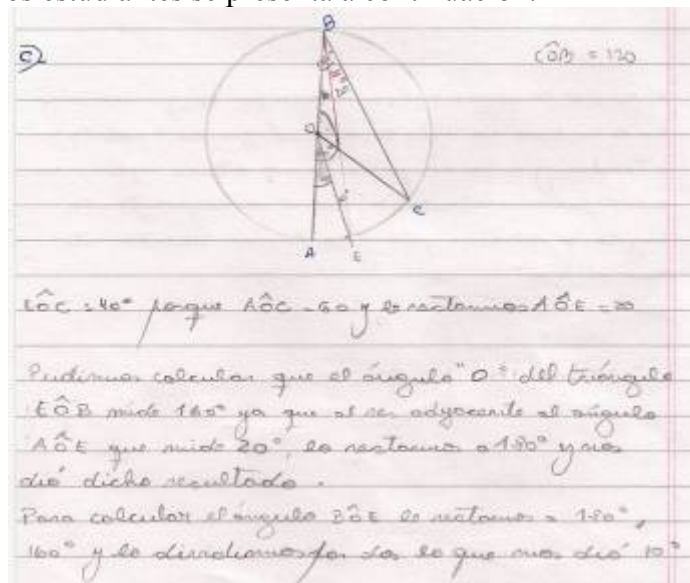 os estudiantes se presenta a continuación:
c)
B
CÔB = 120
O
C
A
E
EÔC = 40° porque AÔC = 60 y le restamos AÔE = 20
Pudimos calcular que el ángulo "O" del triángulo
EÔB mide 160° ya que al ser adyacente al ángulo
AÔE que mide 20°, lo restamos a 180° y nos
dió dicho resultado.
Para calcular el ángulo BÔE le restamos a 180°,
160° y lo dividimos por dos lo que nos dió 10°